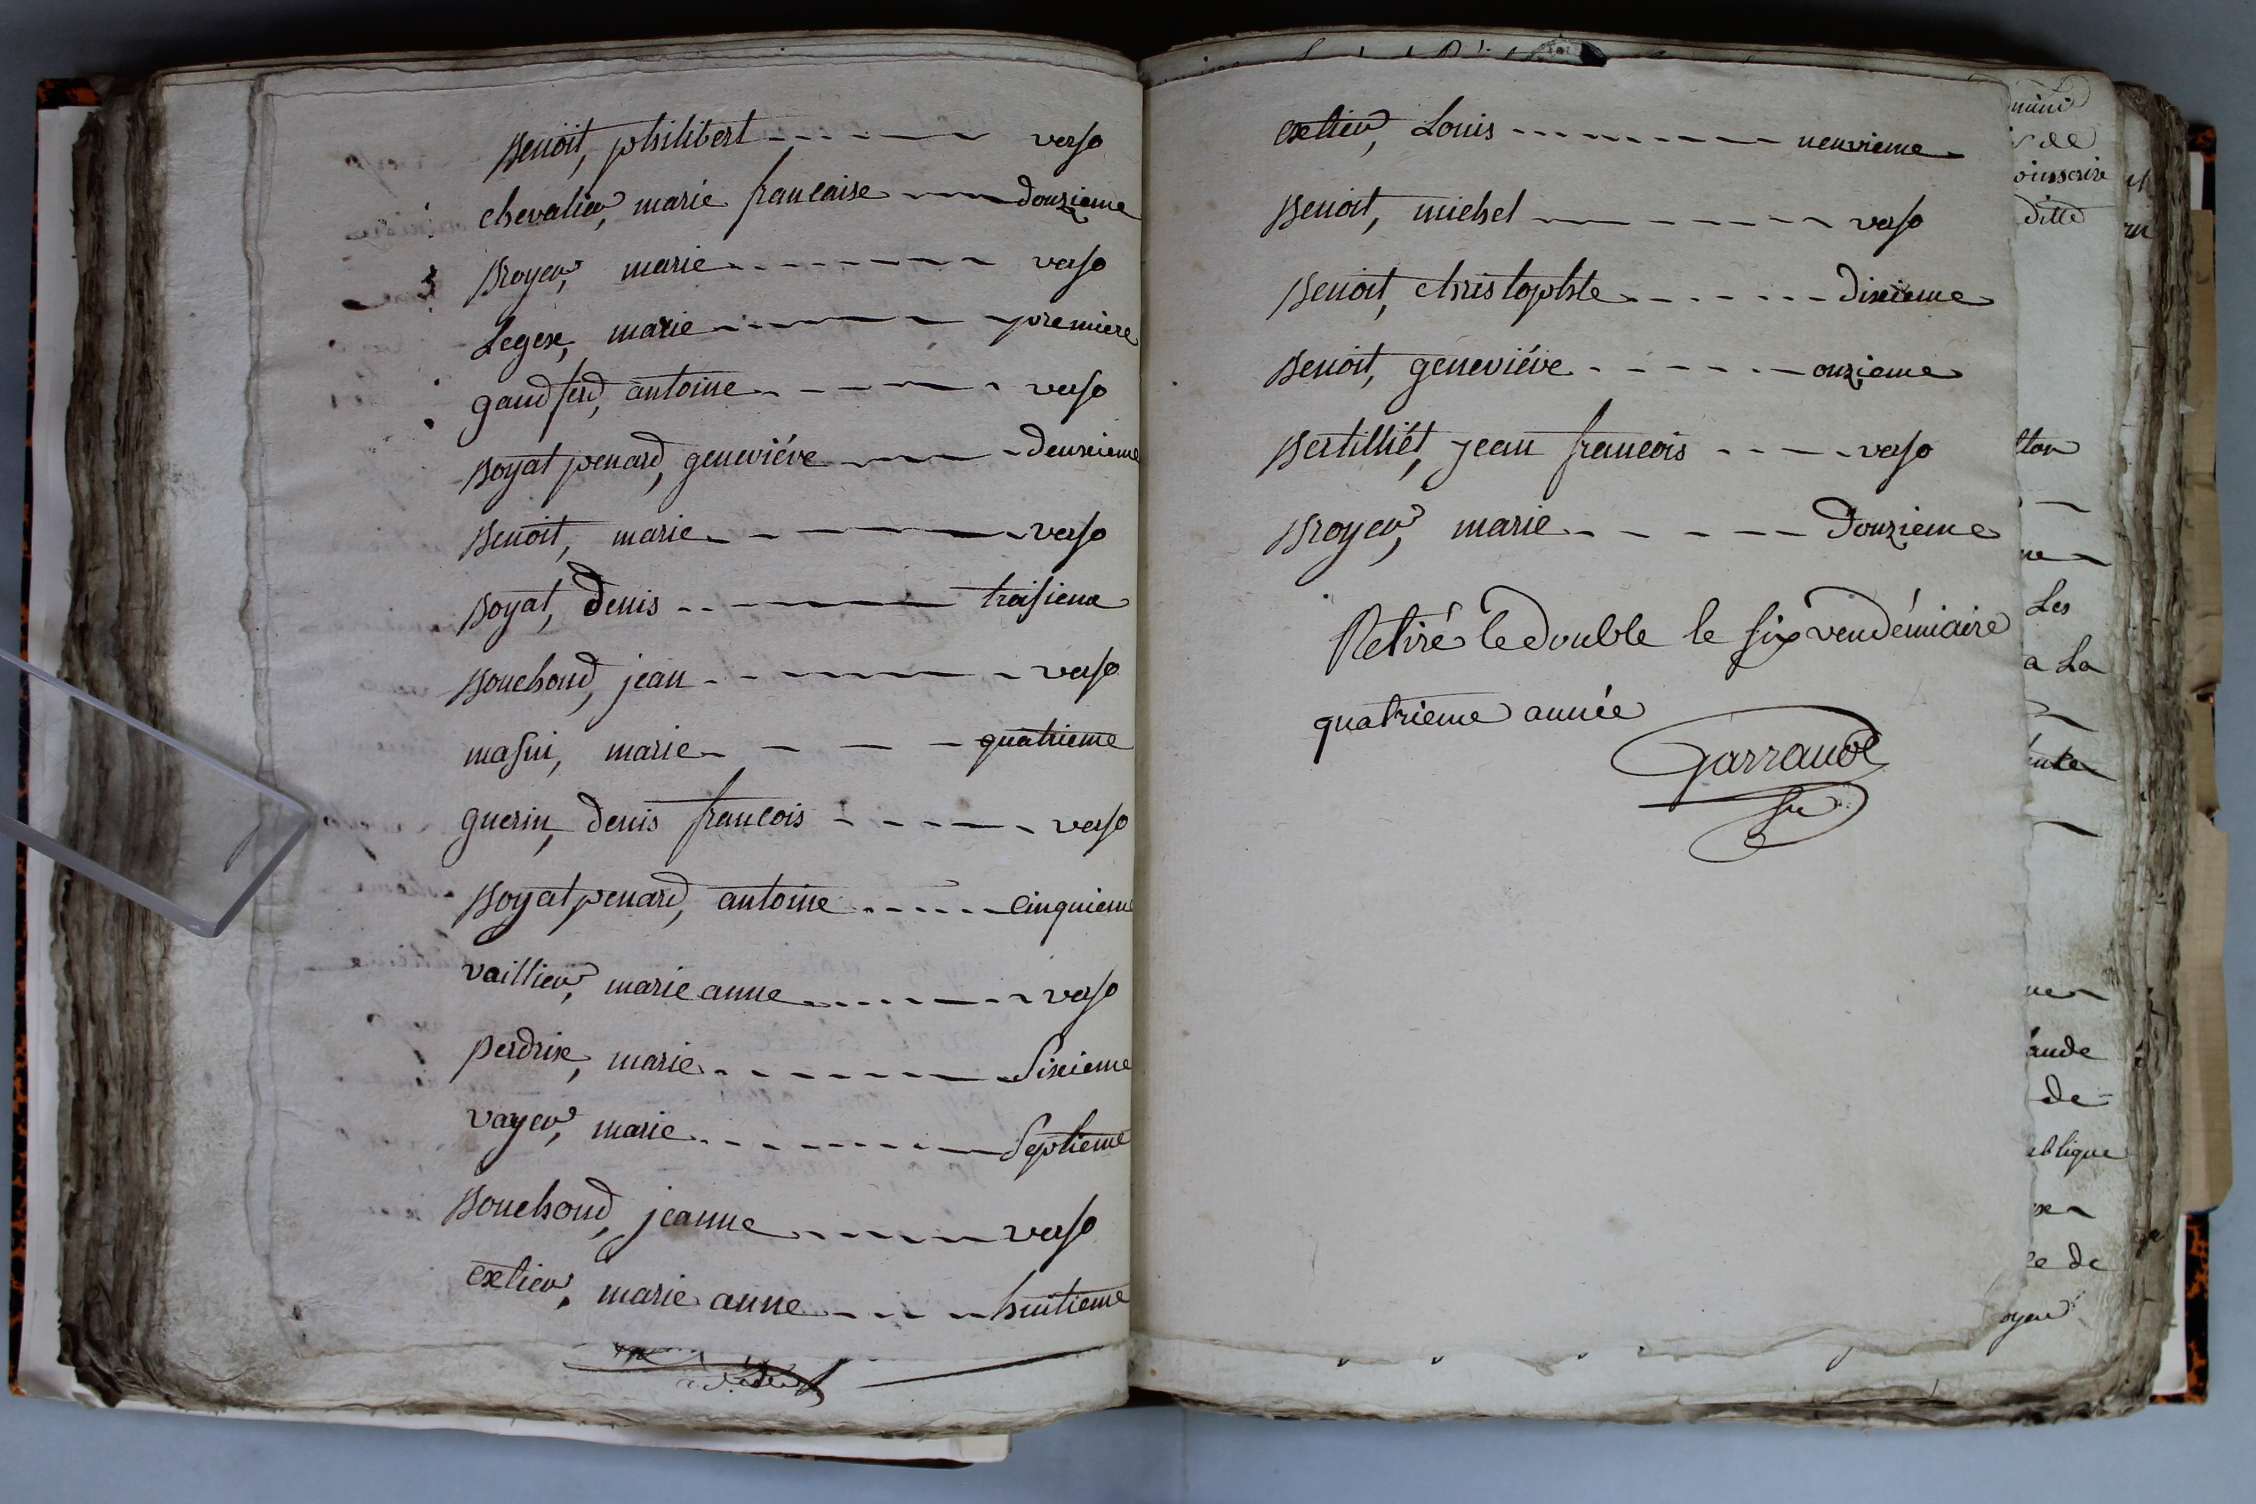 Benoit, philibert verso
chevalier, marie francaise douzieme
Broyer, marie verso
Legex, marie premiere
gaudferd, antoine verso
Boyat penard, geneviéve deuxieme
Benoit, marie verso
Boyat, denis troisieme
Bouchoud, jean verso
masui, marie quatrieme
guerin, denis francois verso
Boyat penard, antoine cinquieme
vaillier, marie anne verso
perdrix, marie Sixieme
vayer, marie Septieme
Bouchoud, jeanne verso
extier, marie anne huitieme
extier, Louis neuvieme
Benoit, michel verso
Benoit, christophle dixieme
Benoit, geneviéve onzieme
Bertilliét, jean francois verso
Broyer, marie douzieme
Retiré le double le six vendémiaire
quatrieme année
Garraud
mini
de
ditte
Les
a La
de